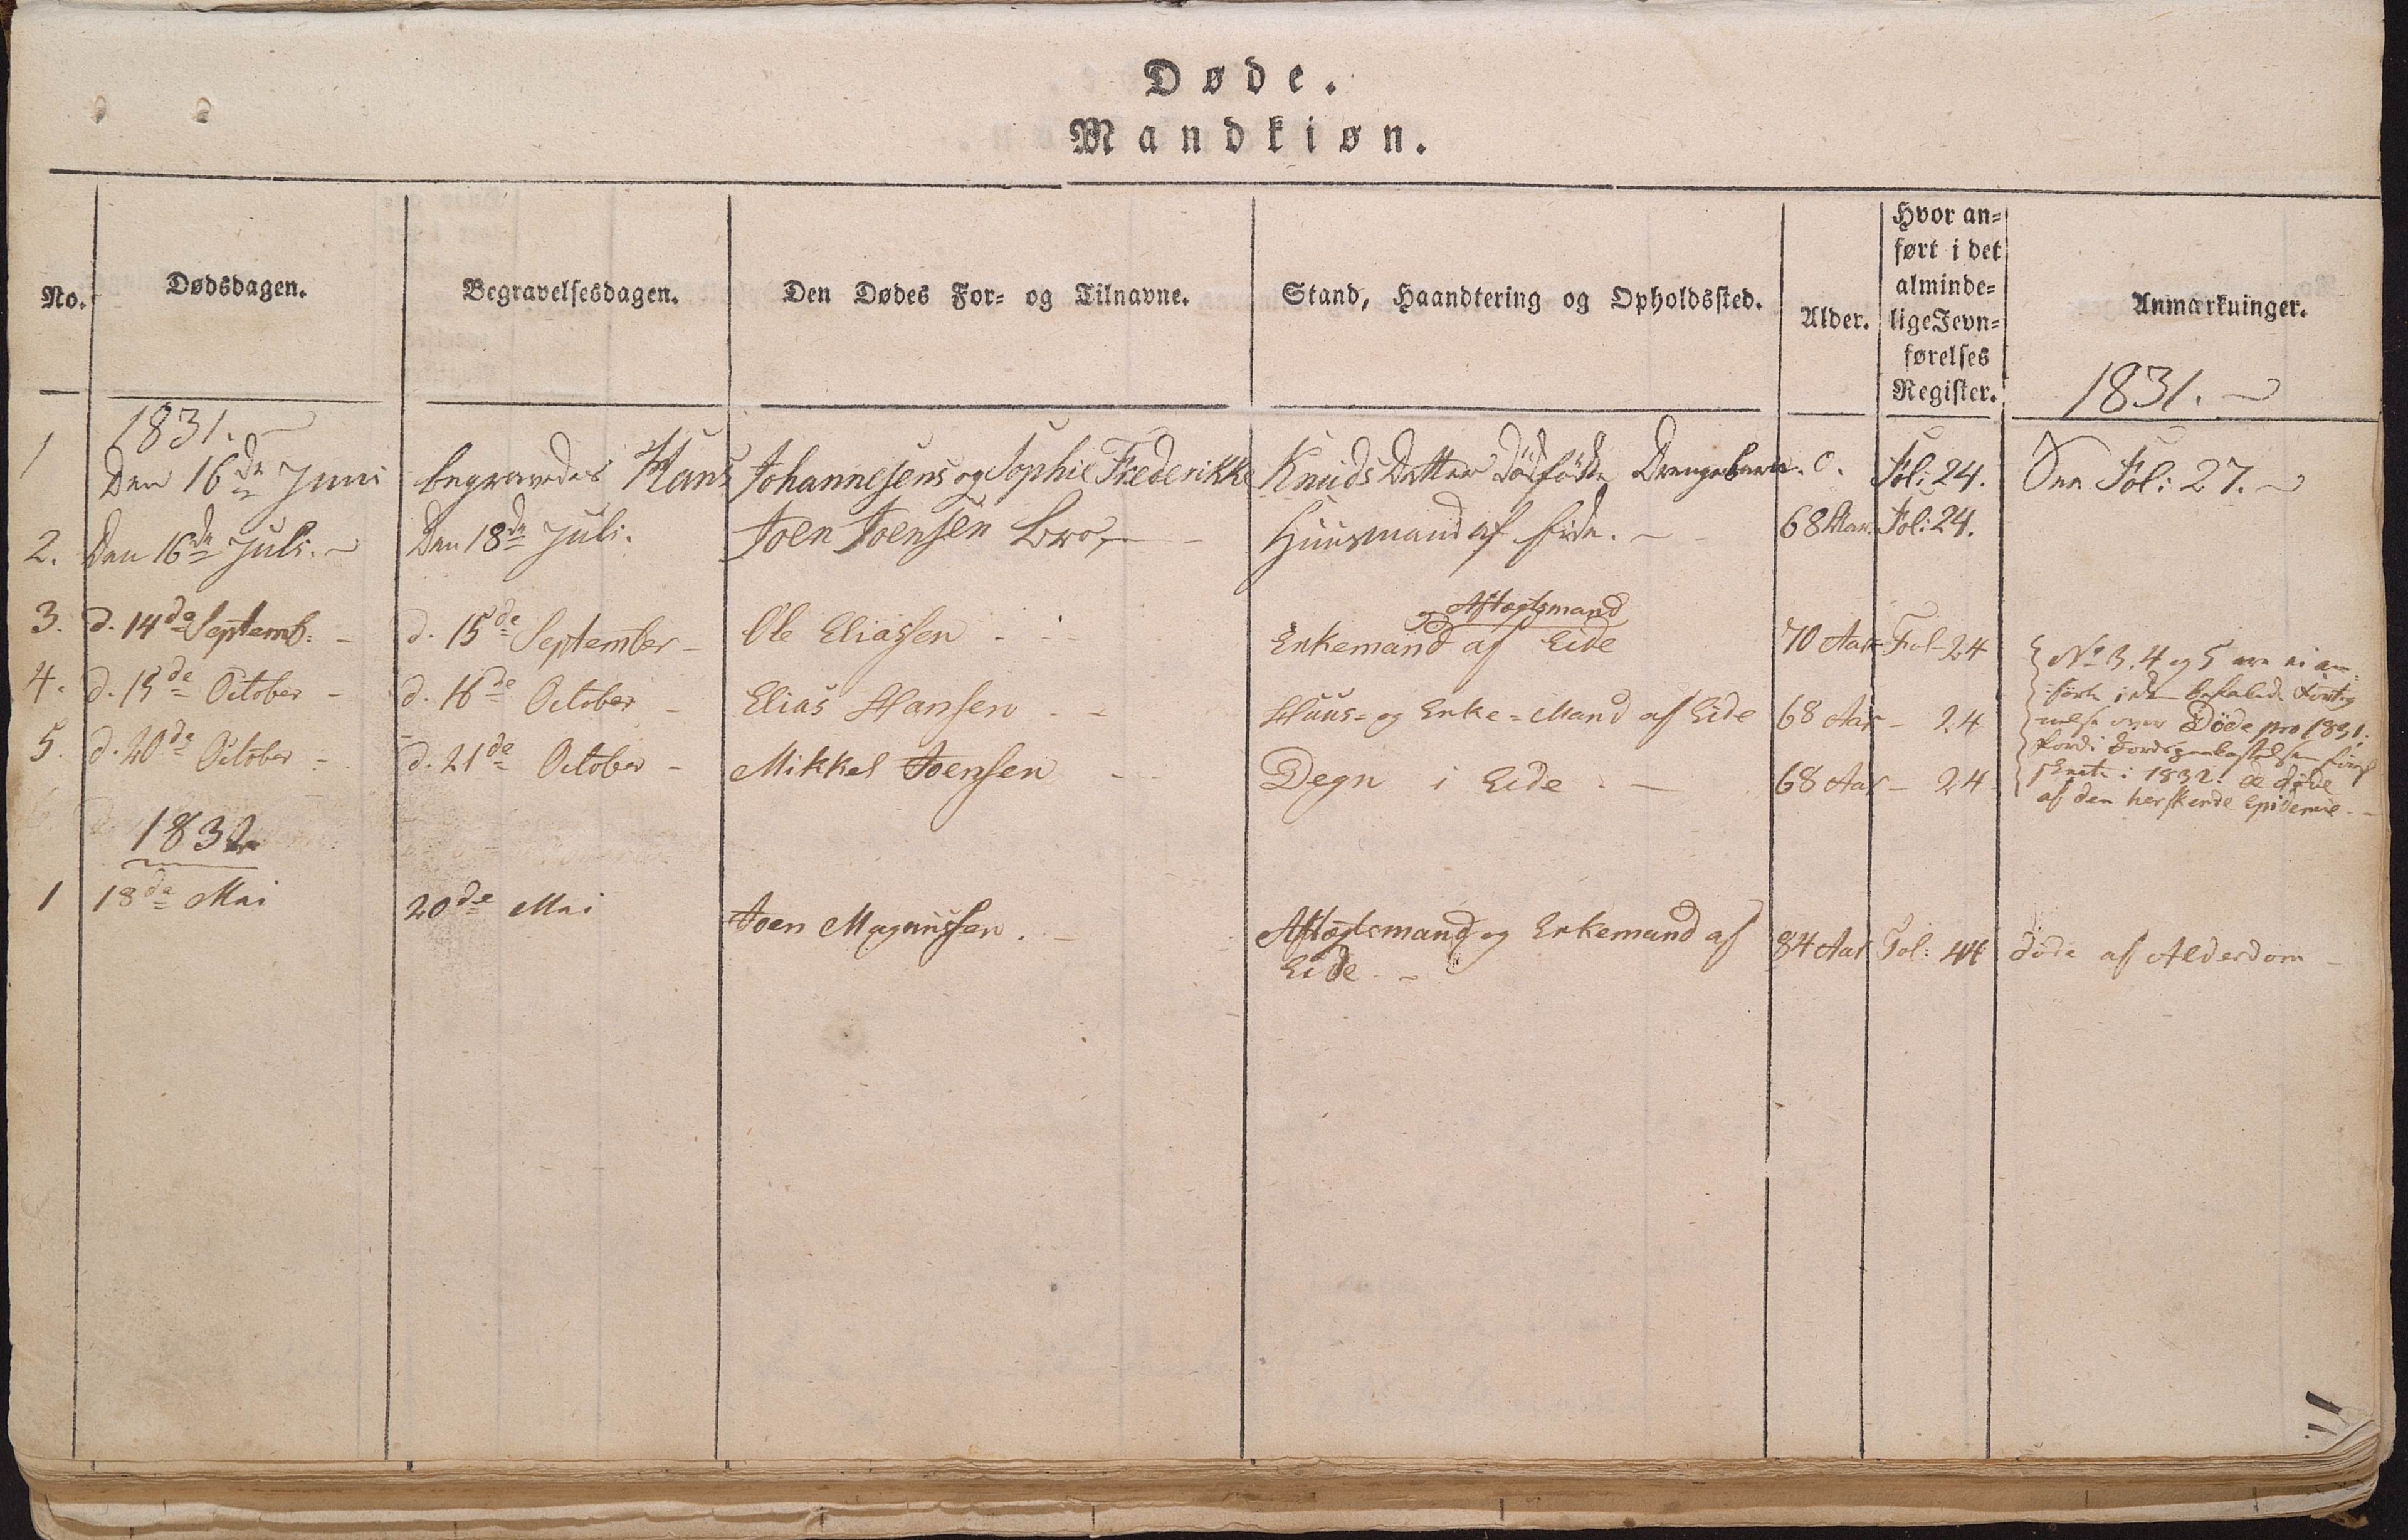 Døde.
Mandkiøn.
No. Dødsdagen. Begravelsesdagen. Den Dødes For- og Tilnavne. Stand, Haandtering og Opholdssted. Alder. Hvor an-
ført i det
alminde-
lige Jevn-
førelses
Register. Anmærkninger.
1831.
1831.
1 Den 16de Juni begravedes Hans Johannesens og Sophie Frederikke Knuds Datter dödfödte Drengebarn. 0. Fol: 24. See Fol: 27.
2. Den 16de Juli. Den 18de Juli. Joen Joensen Bro, Huusmand af Eide. 68 Aar. Fol: 24.
og Aftægtsmand
3. d. 14de Septemb: d. 15de September Ole Eliassen Enkemand af Eide 70 Aar Fol 24
4. d. 15de October d. 16de October Elias Hansen Huus- og Enke-Mand af Eide 68 Aar 24
5. d. 20de October d. 21de October Mikkel Joensen Degn i Eide 68 Aar 24
No 3, 4 og 5 ere ei an-
førte i den befalede Forteg
nelse over Døde pro 1831.
fordi
skeete i 1832. De døde
af den herskende Epidemie.
1832
1 18de Mai 20de Mai Joen Magnussen. Aftægtsmand og Enkemand af
Eide. 84 Aar Fol: 44 døde af Alderdom